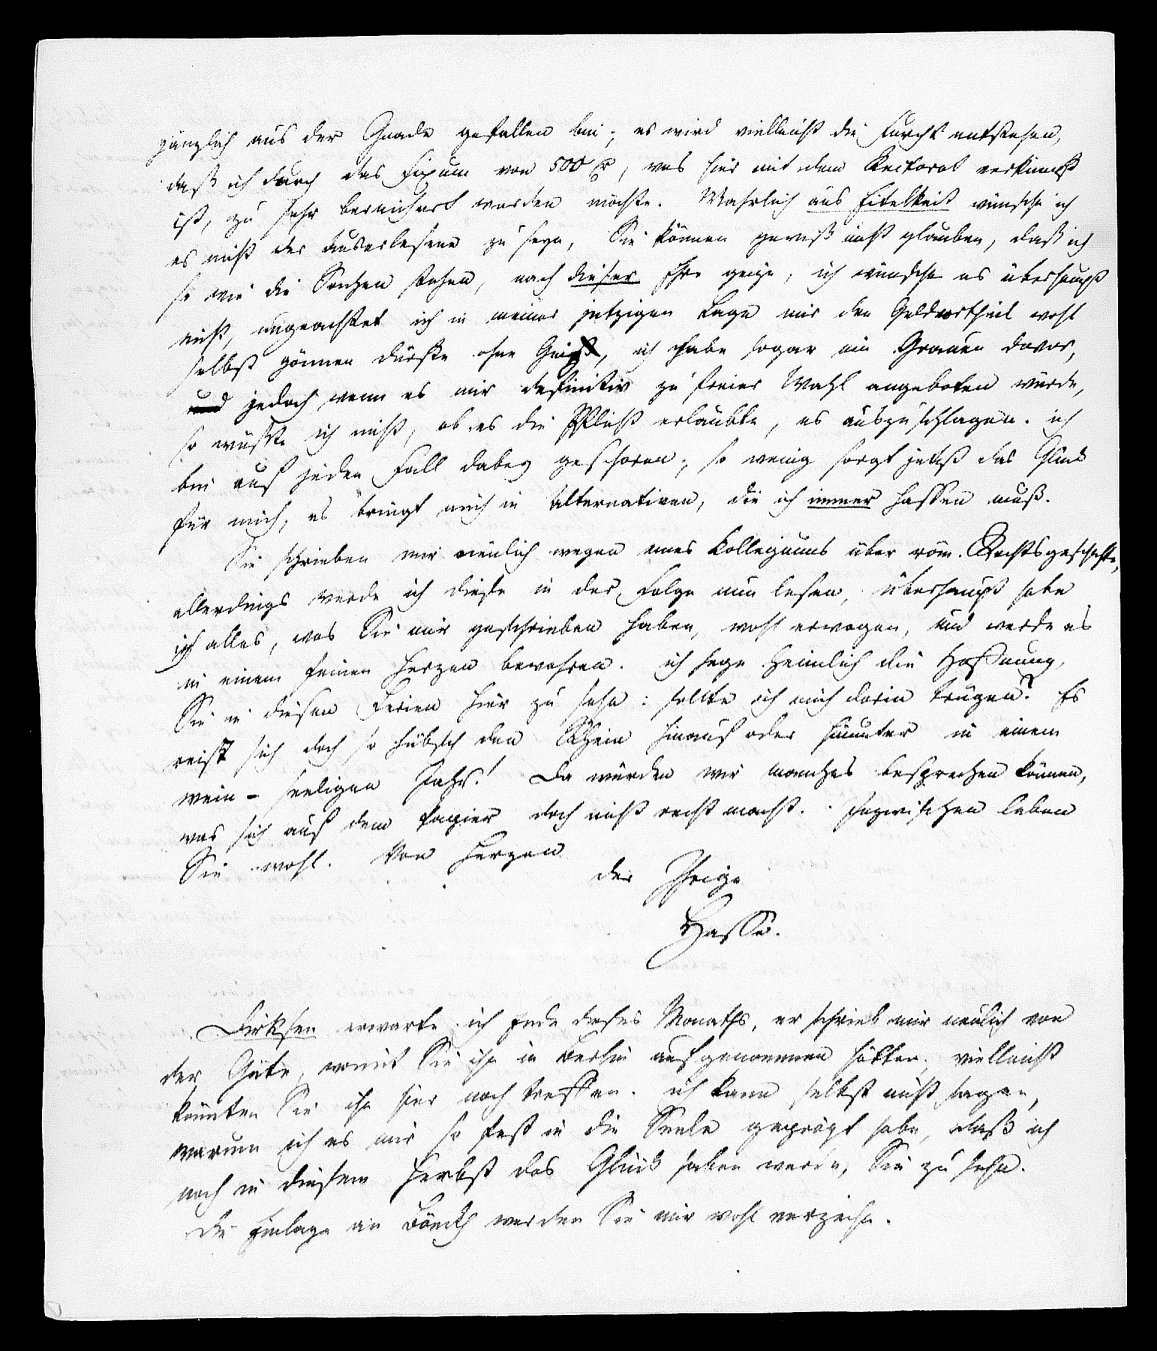 gänzlich aus der Gnade gefallen bin; es wird vielleicht die Furcht entstehen,
daß ich durch das Fixum von 500 rß, was hier mit dem Rectorat verknüpft
ist, zu sehr bereichert werden möchte. Wahrlich aus Eitelkeit wünsche ich
es nicht der Auserlesene zu seyn, Sie können gewiß nicht glauben, daß ich
so wie die Sachen stehen, nach dieser Ehre geize, ich wünsche es überhaupt
nicht, ungeachtet ich in meiner jetzigen Lage mir den Geldvortheil wohl
selbst gönnen dürfte ohne Geiz, ich habe sogar ein Grauen davor,
und jedoch wenn es mir definitiv zu freier Wahl angeboten würde,
so wüßte ich nicht, ob es die Pflicht erlaubte, es auszuschlagen. ich
bin auf jeden Fall dabey geschoren; so wenig sorgt jetzt das Glück
für mich, es bringt mich in Alternativen, die ich immer hassen muß.
Sie schrieben mir neulich wegen eines Kollegiums über röm. Rechtsgeschichte,
allerdings werde ich diese in der Folge nun lesen, überhaupt habe
ich alles, was Sie mir geschrieben haben, wohl erwogen, und werde es
in einem feinen Herzen bewahren. ich hege heimlich die Hoffnung,
Sie in diesen Ferien hier zu sehn: sollte ich mich darin trügen? Es
reist sich doch so hübsch den Rhein hinauf oder hinunter in einem
wein-seeligen Jahr! Da würden wir manches besprechen können,
was sich auf dem Papier doch nicht recht macht. Inzwischen leben
Sie wohl. Von Herzen
der Ihrige
Hasse.
Dirksen erwarte ich Ende dieses Monaths, er schrieb mir neulich von
der Güte, womit Sie ihn in Berlin aufgenommen hätten. vielleicht
könnten Sie ihn hier noch treffen. ich kann selbst nicht sagen,
warum ich es mir so fest in die Seele geprägt habe, daß ich
noch in diesem Herbst das Glück haben werde, Sie zu sehn.
die Einlage an Böckh werden Sie mir wohl verzeihn.